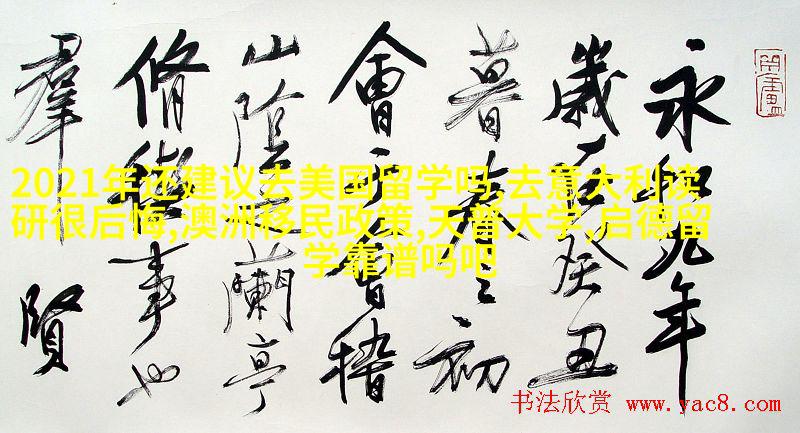 永和九年
歲在癸丑
暮春之初
會于會稽
山陰之蘭亭
脩稧事也
羣賢
2021年还建议去美国留学吗,去意大利读
研很后悔,澳洲移民政策,天普大学,启德留
学靠谱吗吧
书法欣赏 www.yac8.com